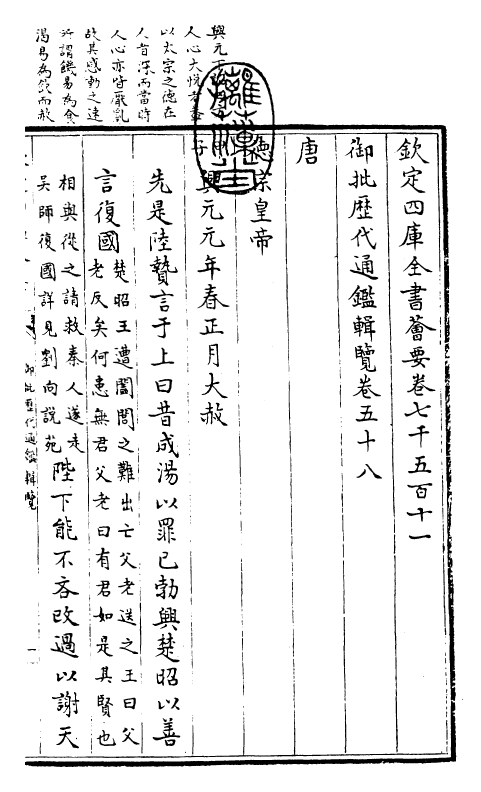 欽定四庫全書薈要卷七千五百十一
御批歷代通鑑輯覽卷五十八
唐
德宗皇帝
甲子興元元年春正月大赦
先是陸贄言于上曰昔成湯以罪己勃興楚昭以善
言復國楚昭王遭闔閭之難出亡父老送之王曰父
老反矣何患無君父老曰有君如是其賢也
相與從之請救秦人遂走
吳師復國詳見劉向說苑陛下能不吝改過以謝天
御批歷代通鑑輯覽
一
人心大悅
以太宗之德在
人者深而當時
人心亦皆厭亂
故其感動之速
所謂饑易為食
渴易為飲而赦